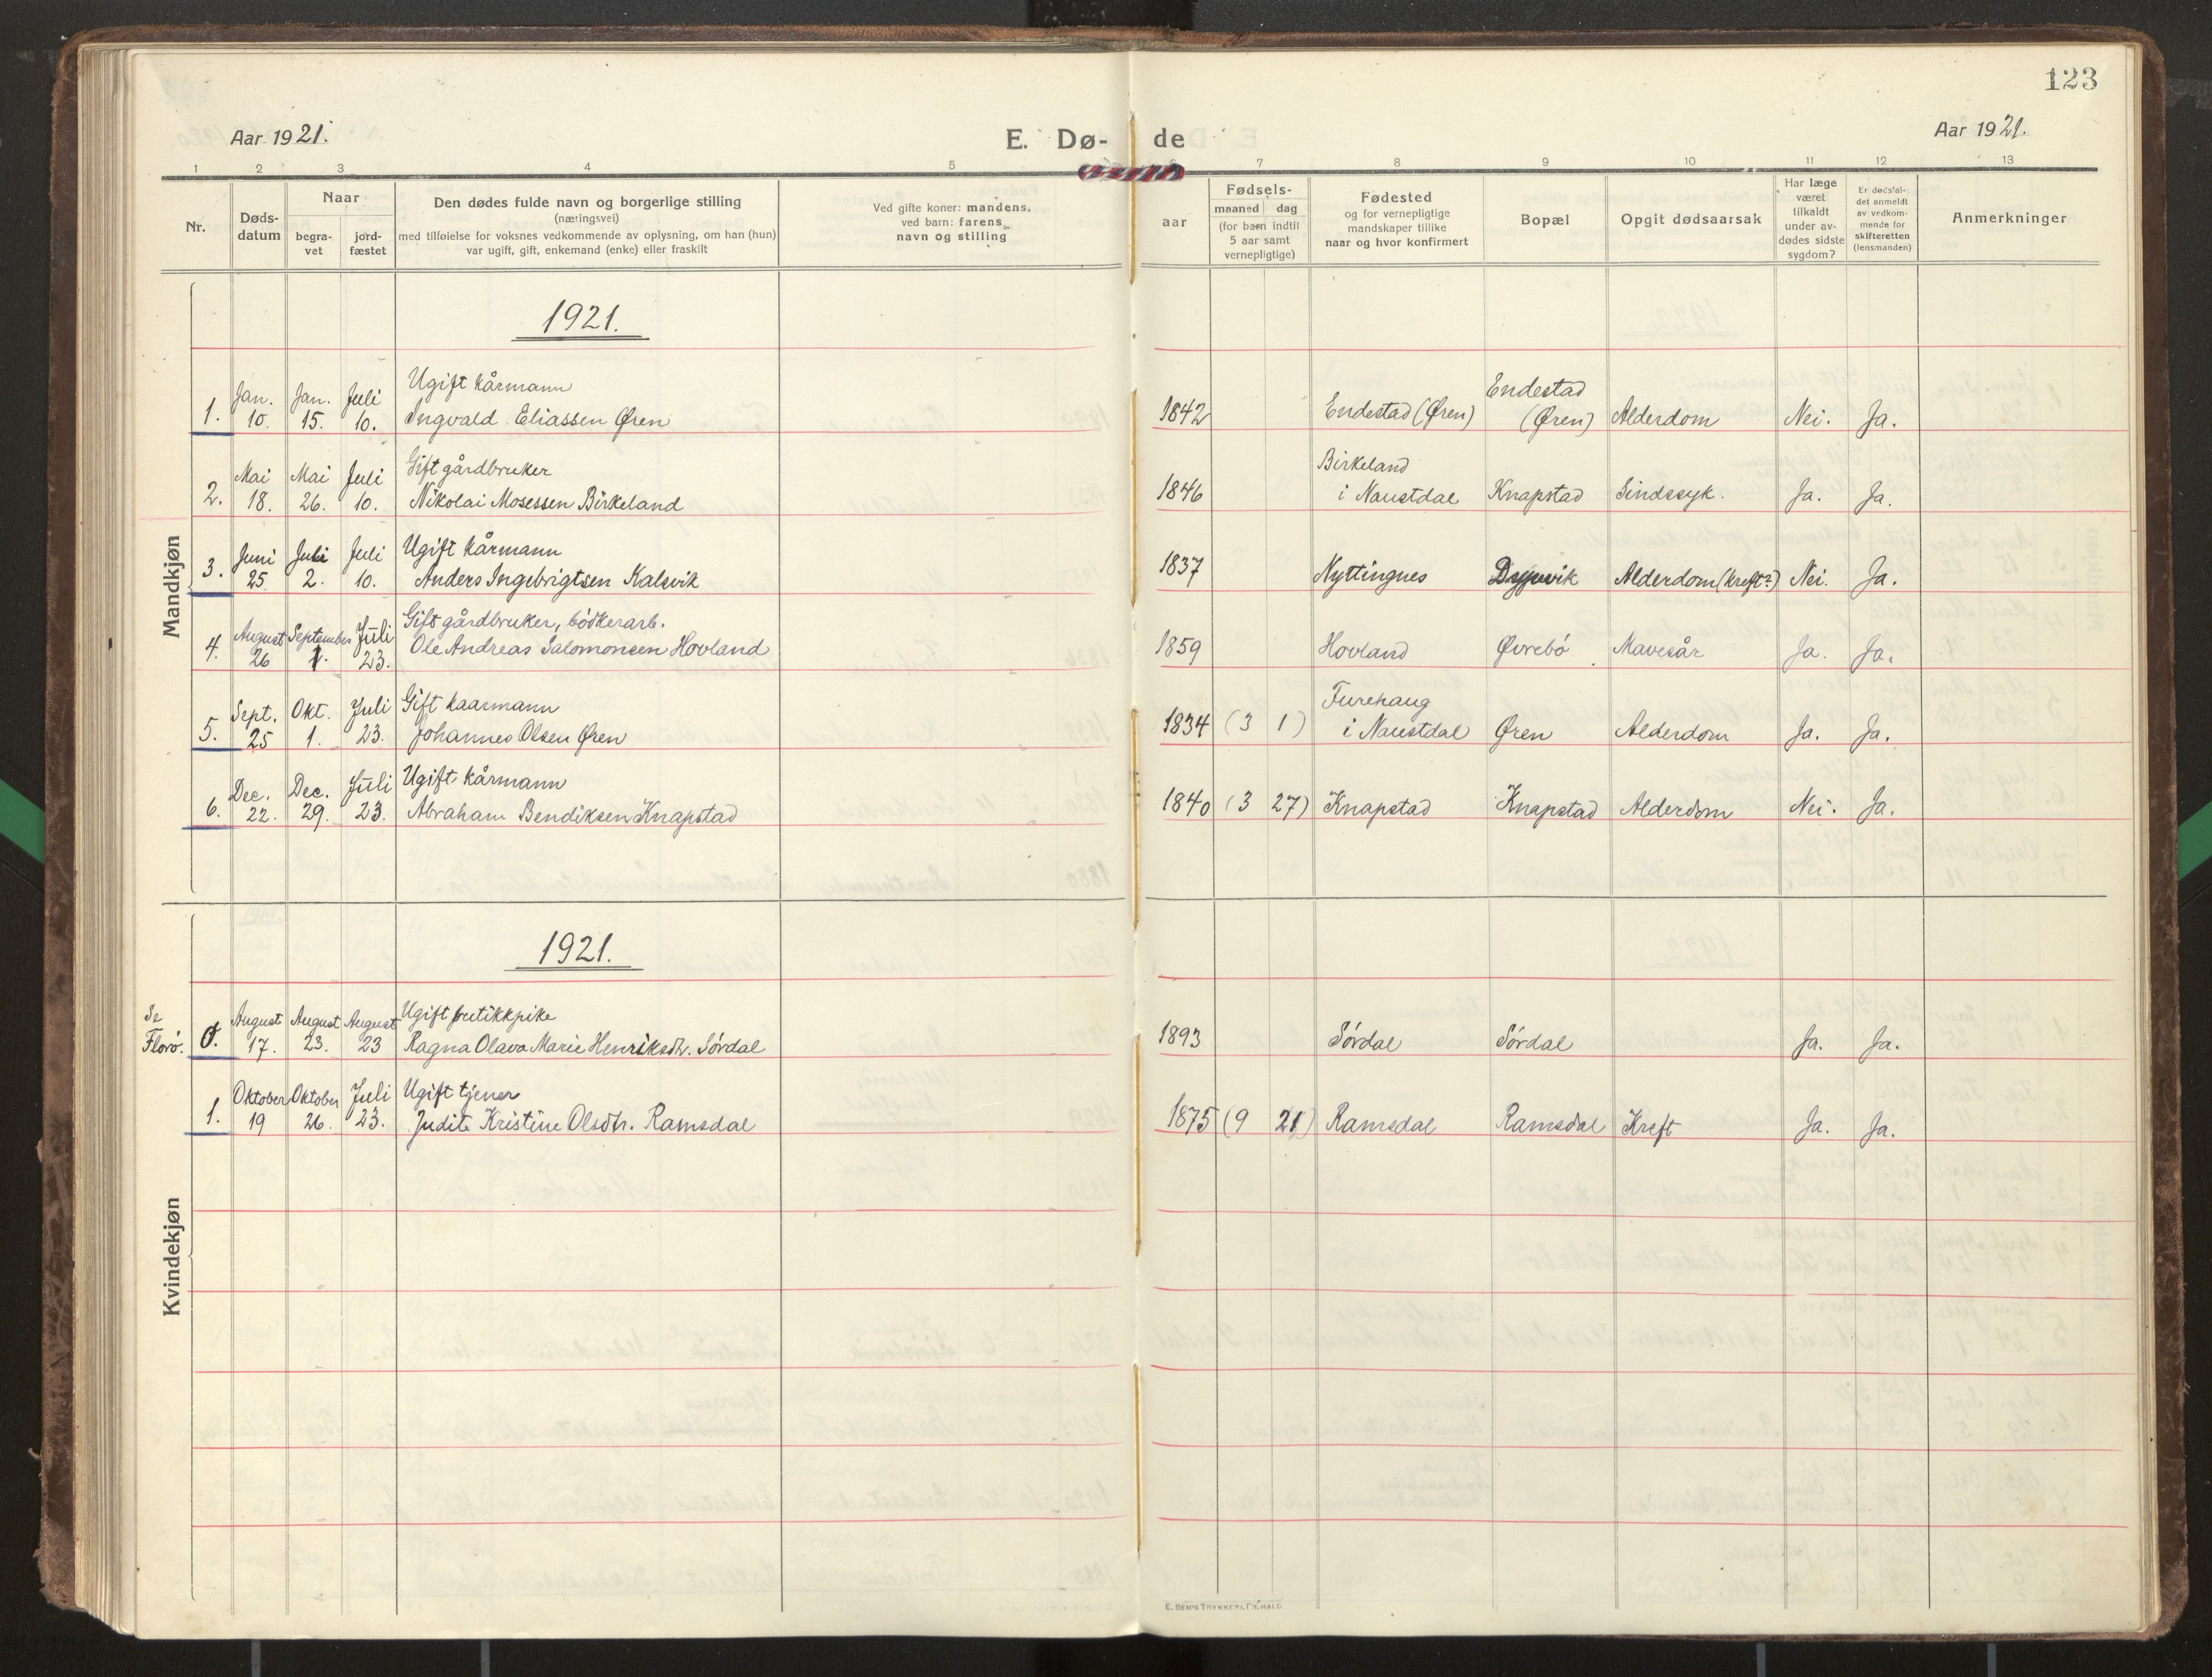 123
Aar 1921.
E. Dø-
de
Aar 1921.
1 2 3 4 5 7 8 9 10 11 12 13
Nr.
Døds-
datum
Naar
begra-
vet
jord-
fæstet
Den dødes fulde navn og borgerlige stilling
(næringsvei)
med tilføielse for voksnes vedkommende av oplysning, om han (hun)
var ugift, gift, enkemand (enke) eller fraskilt
Ved gifte koner: mandens,
ved barn: farens
navn og stilling
aar
Fødsels-
maaned dag
(for barn indtil
5 aar samt
vernepligtige)
Fødested
og for vernepligtige
mandskaper tillike
naar og hvor konfirmert
Bopæl
Opgit dødsaarsak
Har læge
været
tilkaldt
under av-
dødes sidste
sygdom?
Er dødsfal-
det anmeldt
av vedkom-
mende for
skifteretten
(lensmanden)
Anmerkninger
Mandkjøn
1921.
Jan. Jan. Juli Ugift kårmann Endestad
1. 10. 15. 10. Ingvald Eliassen Øren 1842 Endestad (Øren) (Øren) Alderdom Nei. Ja.
Mai Mai Juli Gift gårdbruker Birkeland
2. 18. 26. 10. Nikolai Mosessen Birkeland 1846 i Naustdal Knapstad Sindssyk. Ja. Ja.
Juni Juli Juli Ugift kårmann
3. 25 2. 10. Anders Ingebrigtsen Kalsvik 1837 Nyttingnes Dypvik Alderdom (kreft?) Nei. Ja.
August September Juli Gift gårdbruker, bødkerarb.
4. 26 1. 23. Ole Andreas Salomonsen Hovland 1859 Hovland Øvrebø Mavesår Ja. Ja.
Sept. Okt. Juli Gift kaarmann Furehaug
5. 25 1. 23. Johannes Olsen Øren 1834 (3 1) i Naustdal Øren Alderdom Ja. Ja.
Dec. Dec. Juli Ugift kårmann
6. 22. 29. 23. Abraham Bendiksen Knapstad 1840 (3 27) Knapstad Knapstad Alderdom Nei. Ja.
Kvindekjøn
1921.
Se August August August Ugift butikkpike
Florø. 0. 17. 23. 23 Ragna Olava Marie Henriksdtr. Sørdal 1893 Sørdal Sørdal Ja. Ja.
Oktober Oktober Juli Ugift tjener
1. 19 26. 23. Judite Kristine Olsdtr. Ramsdal 1875 (9 21) Ramsdal Ramsdal Kreft Ja. Ja.
E. SEM'S TRYKKERI, FR.HALD